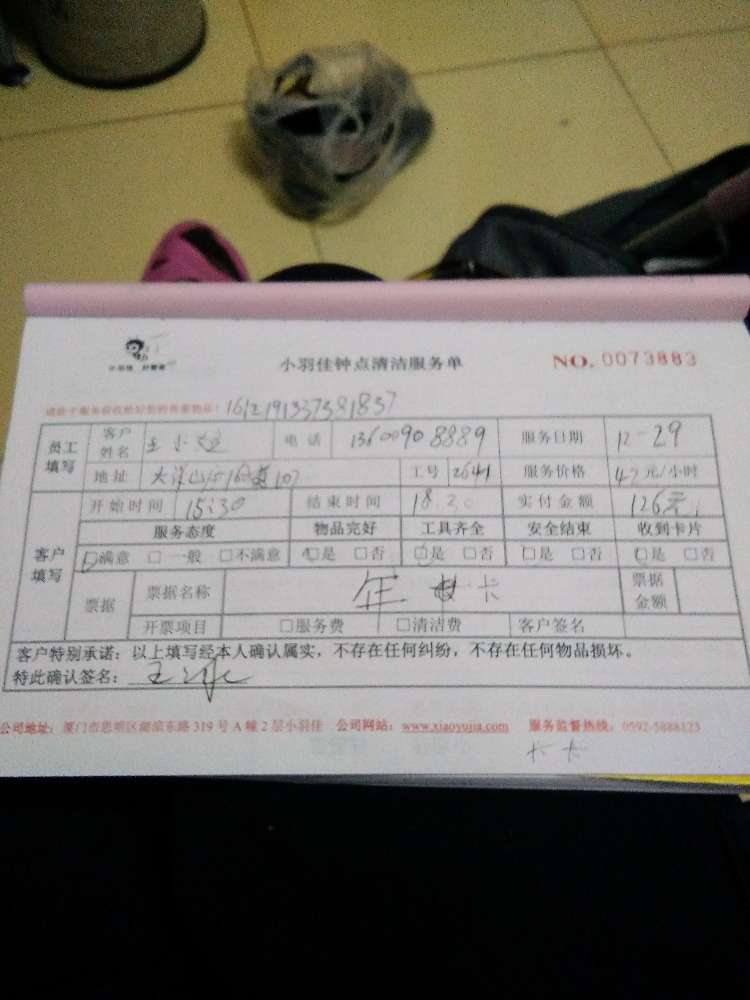 小羽佳钟点清洁服务单 NO.0073883
小羽佳 好管家
请您于服务前收拾好您的贵重物品! 1612191337381837
员工填写 客户姓名 王小 电话 13600908889 服务日期 12-29
地址 107 工号 2641 服务价格 42元/小时
开始时间 15:30 结束时间 18.30 实付金额 126元
服务态度 物品完好 工具齐全 安全结束 收到卡片
客户填写 □满意 □一般 □不满意 □是 □否 □是 □否 □是 □否 □是 □否
票据 票据名称 年 卡 票据金额
开票项目 □服务费 □清洁费 客户签名
客户特别承诺:以上填写经本人确认属实,不存在任何纠纷,不存在任何物品损坏。
特此确认签名: 王
公司地址:厦门市思明区湖滨东路319号A幢2层小羽佳 公司网站:www.xiaoyujia.com 服务监督热线:0592-5888123
卡卡